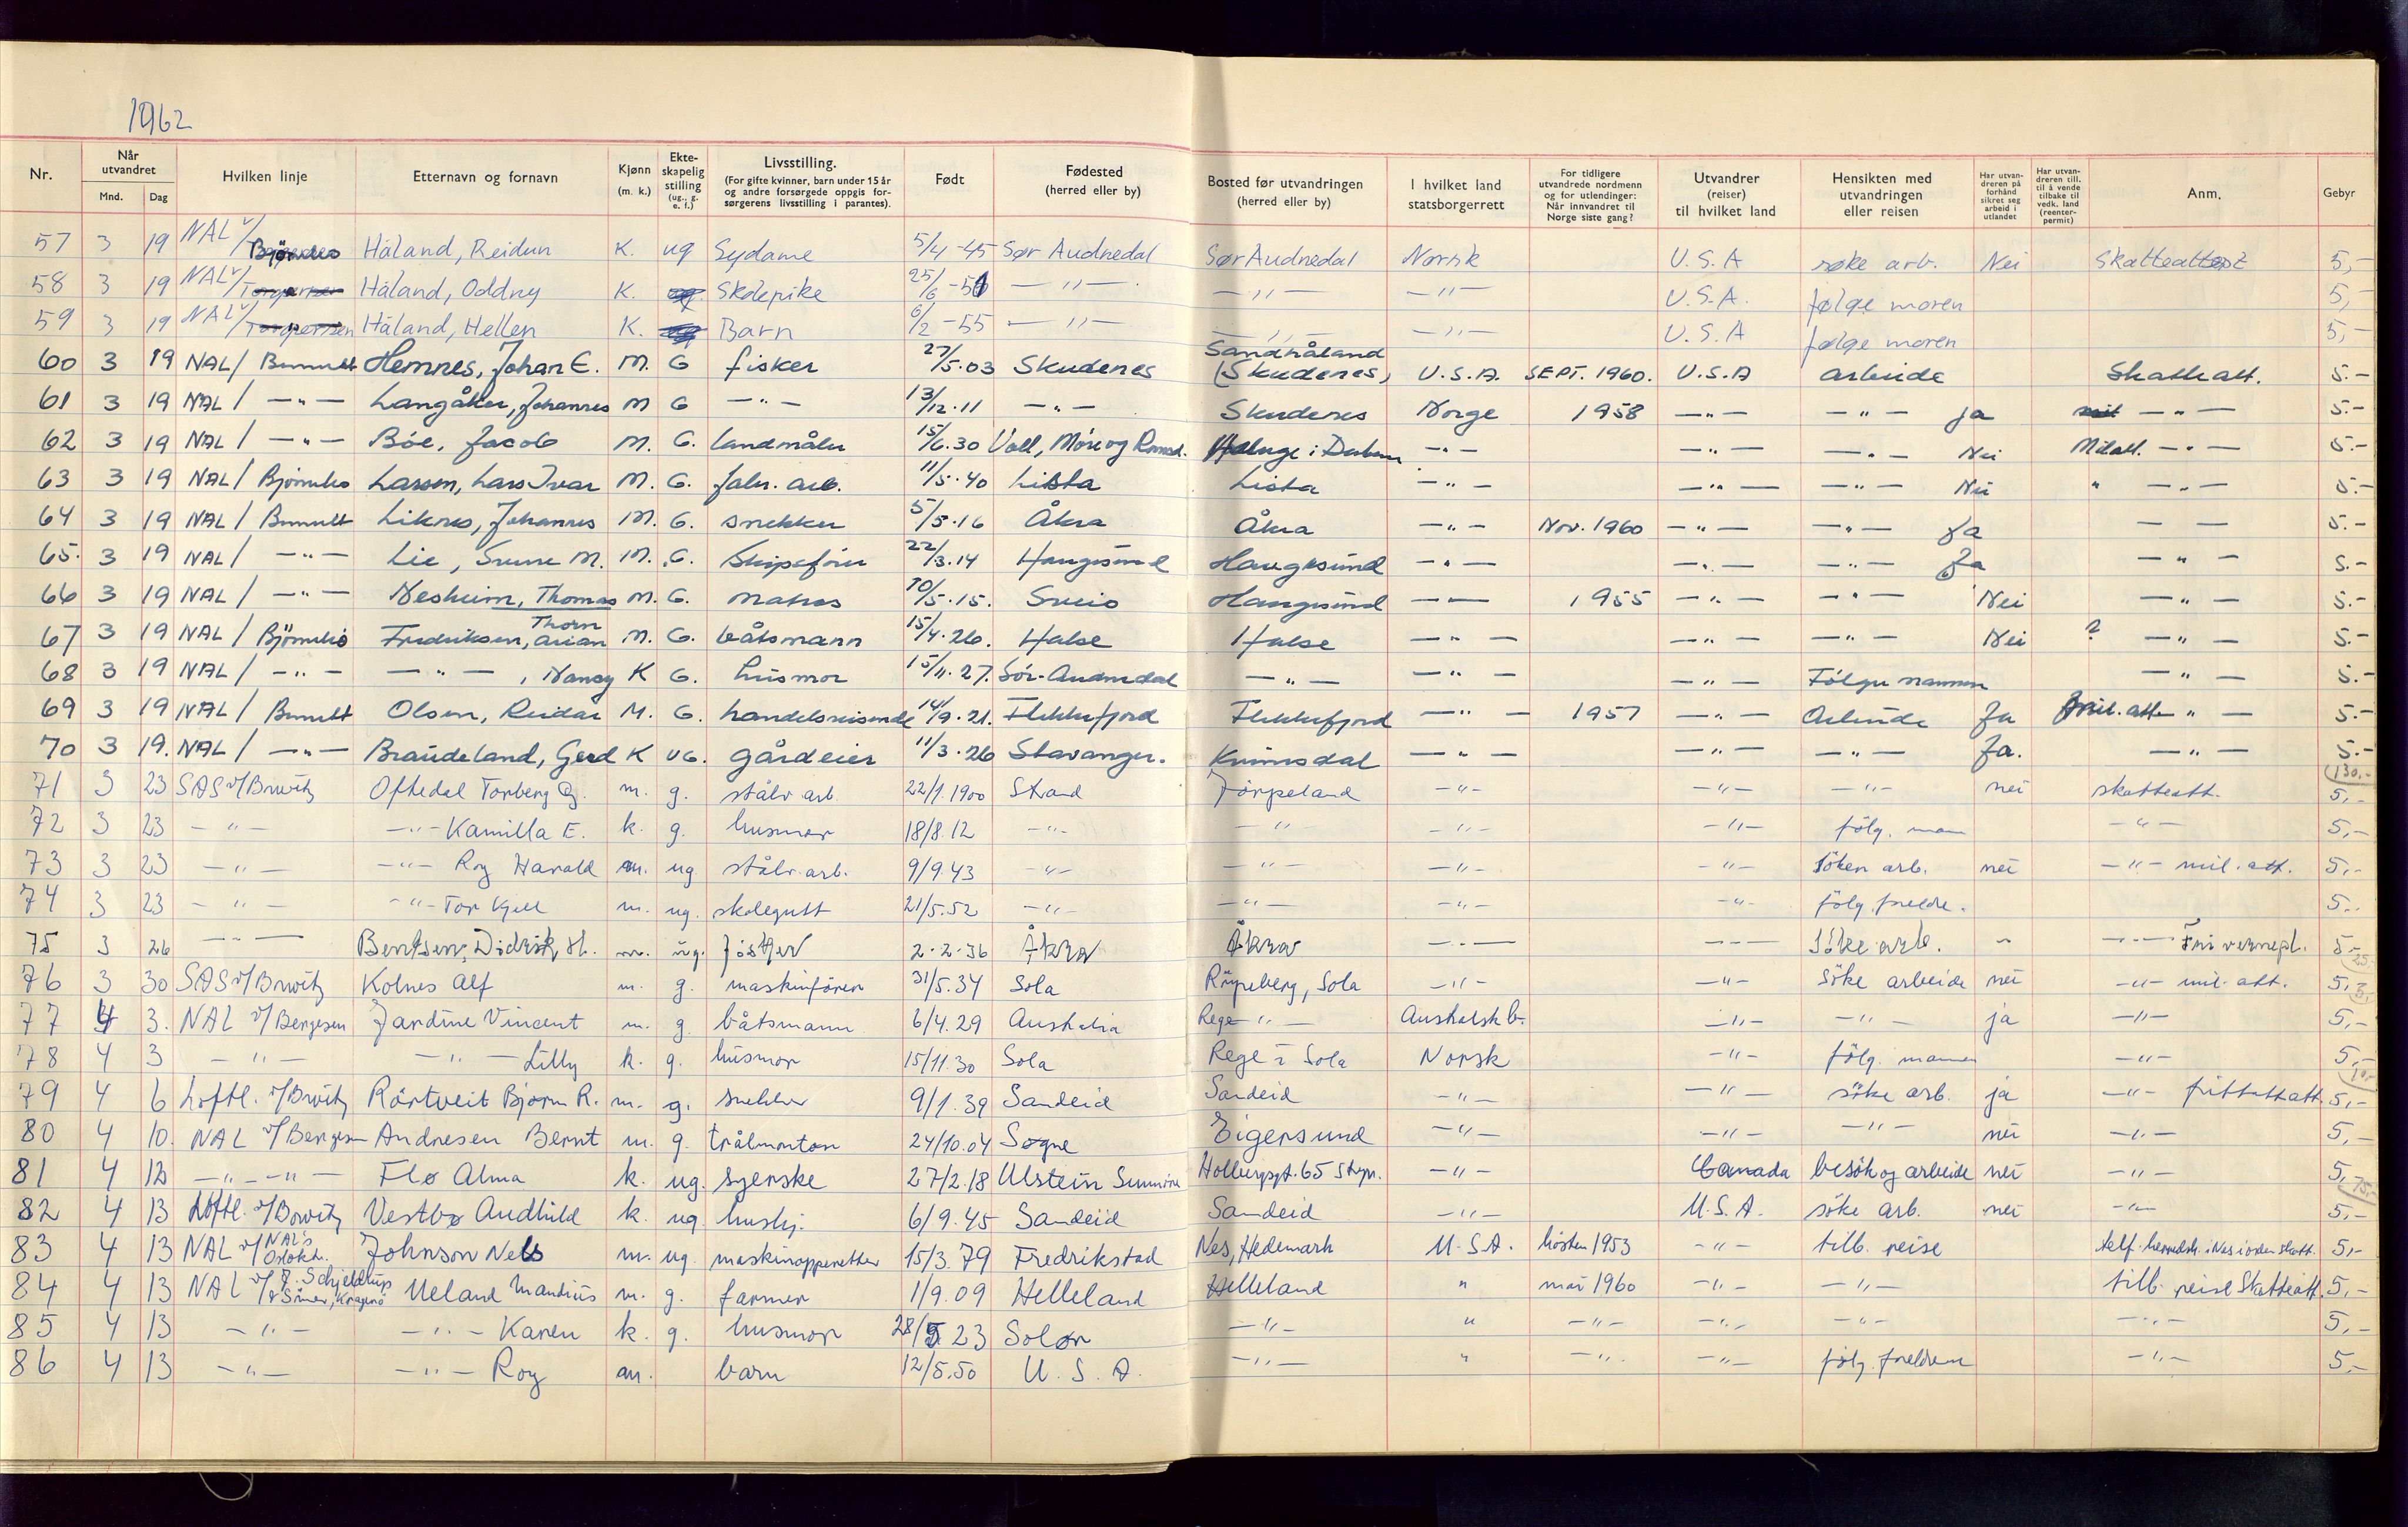 1962
Nr. Når utvandret Mnd. Dag Hvilken linje Etternavn og fornavn Kjønn (m. k.) Ekteskapelig stilling (ug., g. e. f.) Livsstilling. (For gifte kvinner, barn under 15 år og andre forsørgede oppgis forsørgerens livsstilling i parantes). Født Fødested (herred eller by) Bosted før utvandringen (herred eller by) I hvilket land statsborgerrett For tidligere utvandrede nordmenn og for utlendinger: Når innvandret til Norge siste gang? Utvandrer (reiser) til hvilket land Hensikten med utvandringen eller reisen Har utvandreren på forhånd sikret seg arbeid i utlandet Har utvandreren till. til å vende tilbake til vedk. land (reenterpermit) Anm. Gebyr
57 3 19 NAL v/ Håland, Reidun K. ug Sydame 5/4-45 Sør Audnedal Sør Audnedal Norsk U.S.A søke arb. Nei Skatteattest 5,-
58 3 19 NAL v/ Torgersen Håland, Oddny K. Skolepike 25/6-51 —"— —"— —"— U.S.A. følge moren 5,-
59 3 19 NAL v/ Torgersen Håland, Hellen K. Barn 6/2-55 —"— —"— —"— U.S.A følge moren 5,-
60 3 19 NAL/ Hemnes, Johan E. M. G fisker 27/5.03 Skudenes Sandhåland (Skudenes) U.S.A. SEPT. 1960. U.S.A arbeide Skatteatt. 5.-
61 3 19 NAL/ —"— Langåker, Johannes M G —"— 13/12.11 —"— Skudenes Norge 1958 —"— —"— Ja —"— 5.-
62 3 19 NAL/ —"— Bóe, Jacob M. G. Landmåler 15/6.30 Voll, Möre og Romsd. —"— —"— —"— Nei Mil att. —"— 5.-
63 3 19 NAL/ Larsen, Lars Ivar M. G. fabr. arb. 11/5.40 Lista Lista —"— —"— —"— Nei " —"— 5.-
64 3 19 NAL/ Liknes, Johannes M. G. snekker 5/5.16 Åkra Åkra —"— Nov. 1960 —"— —"— Ja — — 5.-
65. 3 19 NAL/ —"— Lie, Sverre M. M. G. Skipsfører 22/3.14 Haugesund Haugesund —"— —"— —"— Ja —"— 5.-
66 3 19 NAL/ —"— Nesheim, Thomas M. G. matros 10/5.15. Sveio Haugesund —"— 1955 —"— —"— Nei —"— 5.-
67 3 19 NAL/ Fredriksen, Thorn Arian M. G. båtsmann 15/4.26. Halse Halse —"— —"— —"— Nei ? —"— 5.-
68 3 19 NAL/ —"— —"—, Nancy K G. husmor 15/11.27. Sör-Audnedal —"— —"— —"— Fölger mannen —"— 5.-
69 3 19 NAL/ Olsen, Reidar M. G. handelsreisende 14/9.21. Flekkefjord Flekkefjord —"— 1957 —"— Arbeide Ja mil. att. " — 5.-
70 3 19. NAL/ —"— Braudeland, Gerd K UG. gårdeier 11/3.26 Stavanger. Kvinesdal —"— —"— —"— Ja. —"— 5.-
130.-
71 3 23 SAS v/Browitz Oftedal Torberg Aj. m. g. stålv. arb. 22/1.1900 Strand Jörpeland —"— —"— —"— nei skatteatt. 5,-
72 3 23 —"— —"— Kamilla E. k. g. husmor 18/8.12 —"— —"— —"— —"— fölg. man —"— 5,-
73 3 23 —"— —"— Roy Harald m. ug stålv. arb. 9/9.43 —"— —"— —"— —"— söken arb. nei —"— mil. att. 5,-
74 3 23 —"— —"— Tor Kjell m. ug. skolegutt 21/5.52 —"— —"— —"— —"— fölg. foreldre. 5,-
75 3 26 —"— Bentsen, Didrik H. m. ug. fisker 2.2.36 Åkra Åkra —"— —"— Söke arb. " —"— Fri vernepl. 5 25,-
76 3 30 SAS v/Browitz Kolnes Alf m. g. maskinfører 31/5.34 Sola Röyneberg, Sola —"— —"— söke arbeide nei —"— mil. att. 5,- 5,-
77 4 3. NAL v/Bergesen Jardine Vincent m. g. båtsmann 6/4.29 Australia Rege —"— Australsk b. —"— —"— ja —"— 5,-
78 4 3 —"— —"— Lilly k. g. husmor 15/11.30 Sola Rege i Sola Norsk —"— fölg. mannen —"— 5,- 10,-
79 4 6 Loftl. v/Browitz Rörtveit Bjørn R. m. g. snekker 9/1.39 Sandeid Sandeid —"— —"— söke arb. ja —"— 5,-
80 4 10. NAL v/Bergesen Andresen Bernt m. g. trålmontør 24/10.04 Søgne Eigersund —"— —"— —"— nei —"— 5,-
81 4 12 —"—"— Flø Alma k. ug. syerske 27/2.18 Ulstein Sunnmøre Holbergsgt. 65 Stvgr. —"— Canada besök og arbeide nei —"— 5,- 15,-
82 4 13 Loftl. v/Browitz Vestbø Audhild k. ug. hushj. 6/9.45 Sandeid Sandeid —"— U.S.A. söke arb. nei —"— 5,-
83 4 13 NAL v/ NAL's Oslokt. Johnson Nels m. ug. maskinoppretter 15/3.79 Fredrikstad Nes, Hedemark U.S.A. hösten 1953 —"— tilb. reise telf. herredsk. i Nes i orden skatt. 5,-
84 4 13 NAL v/ J. Schjeldrup & Söner, Kragerø Ueland Mandius m. g. farmer 1/9.09 Helleland Helleland " mai 1960 —"— —"— tilb. reise Skatteatt. 5,-
85 4 13 —"— —"— Karen k. g. husmor 28/5.23 Solør —"— " —"— —"— —"— —"— 5,-
86 4 13 —"— —"— Roy m. barn 12/5.50 U.S.A. —"— " —"— —"— fölg. foreldren —"— 5,-